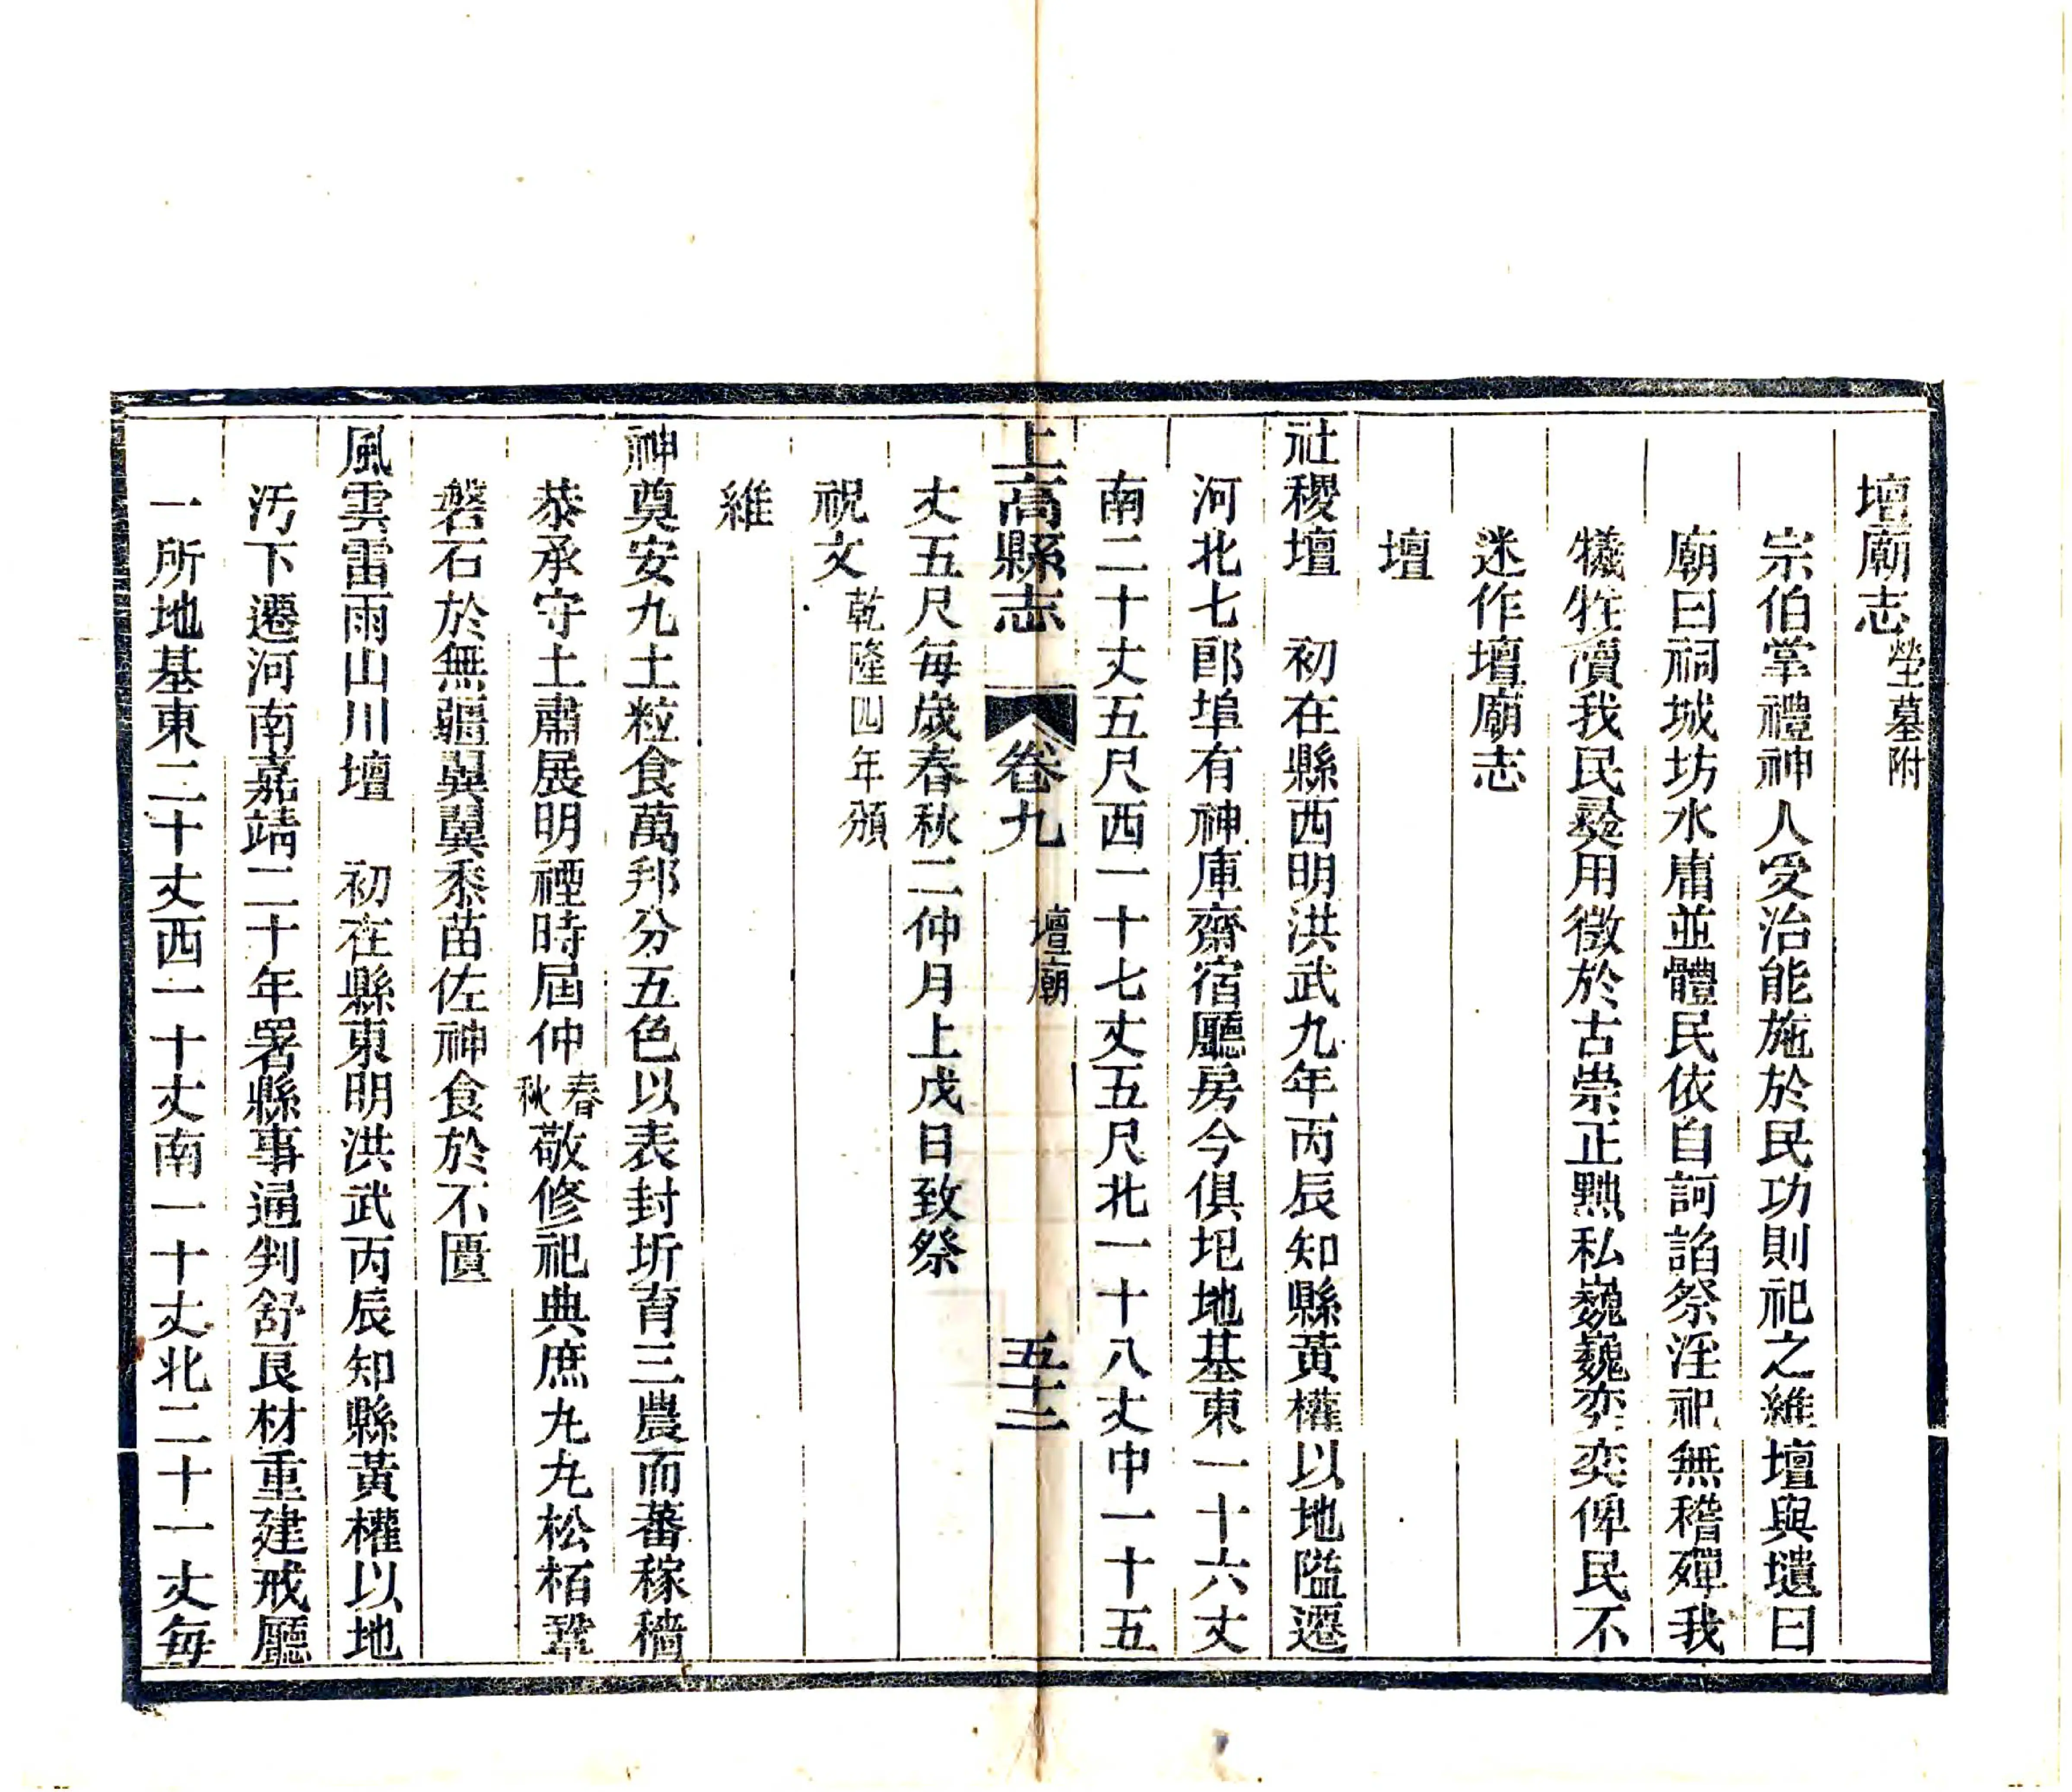 壇廟志塋墓附
宗伯掌禮神人受治能施於民功則祀之維壇與壝曰
廟曰祠城坊水庸並體民依自訶諂祭淫祀無稽殫我
犧牲瀆我民爰用徵於古崇正黜私巍巍奕奕俾民不
迷作壇廟志
壇
社稷壇 初在縣西明洪武九年丙辰知縣黃權以地隘遷
河北七郎埠有神庫齋宿廳房今俱圯地基東一十六丈
南二十丈五尺西一十七丈五尺北一十八丈中一十五
上高縣志 卷九 壇廟 五十二
丈五尺每歲春秋二仲月上戊日致祭
祝文乾隆四年頒
維
神奠安九土粒食萬邦分五色以表封圻育三農而蕃稼穡
恭承守土肅展明禋時屆仲春秋敬修祀典庶丸丸松栢鞏
磐石於無疆翼翼黍苗佐神食於不匱
風雲雷雨山川壇 初在縣東明洪武丙辰知縣黃權以地
汚下遷河南嘉靖二十年署縣事通判舒艮材重建戒廳
一所地基東二十丈西一十丈南一十丈北二十一丈每